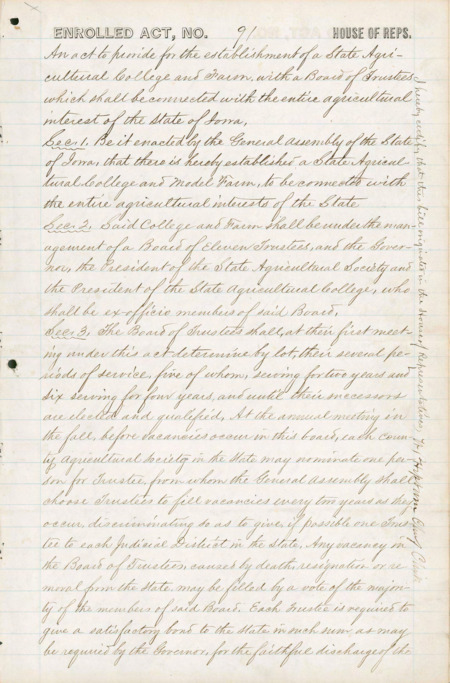 ENROLLED ACT, NO. 91 HOUSE OF REPS.
An act to provide for the establishment of a State Agri-
cultural College and Farm, with a Board of Trustees
which shall be connected with the entire agricultural
interest of the State of Iowa,
Sec. 1. Be it enacted by the General Assembly of the State
of Iowa, that there is hereby established a State Agricul-
tural College and Model Farm, to be connected with
the entire agricultural interests of the State
Sec. 2. Said College and Farm shall be under the man-
agement of a Board of Eleven Trustees, and the Gover-
nor, the President of the State Agricultural Society and
the President of the State Agricultural College, who
shall be ex-officio members of said Board,
Sec. 3. The Board of Trustees shall, at their first meet-
ing under this act determine by lot, their several pe-
riods of service, five of whom, serving for two years and
six serving for four years, and until their successors
are elected and qualified, At the annual meeting in
the fall, before vacancies occur in this board, each coun-
ty Agricultural Society in the State may nominate one per-
son for Trustee, from whom the General Assembly shall
choose Trustees to fill vacancies every two years as they
occur, discriminating so as to give, if possible one Trus-
tee to each Judicial District in the state, Any vacancy in
the Board of Trustees caused by death, resignation or re-
moval from the state, may be filled by a vote of the major-
ity of the members of said Board. Each Trustee is required to
give a satisfactory bond to the State in such sum, as may
be required by the Governor, for the faithful discharge of the
I hereby certify that this bill originated in the House of Representatives, Chief Clerk